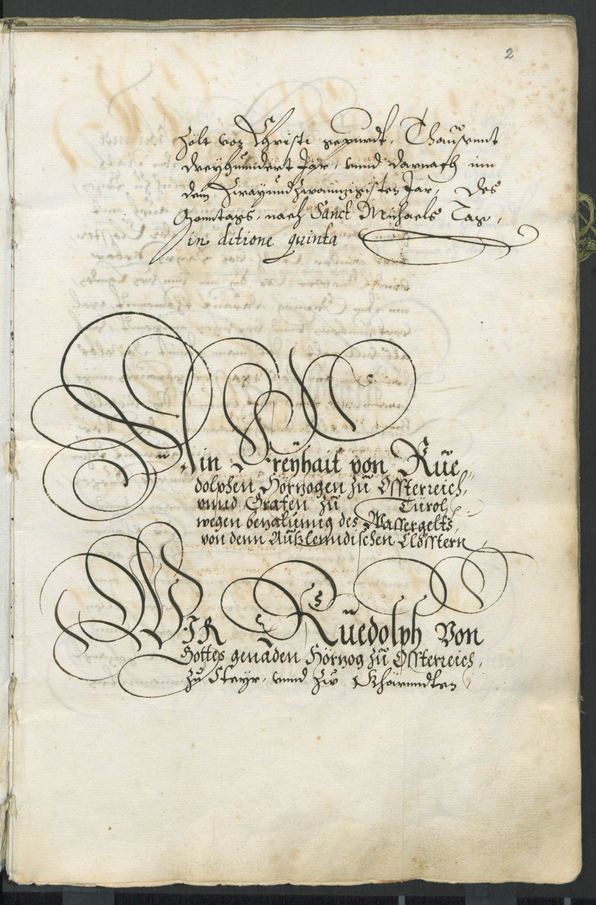 2
Zalt von Christi gepurdt, Thausennt
dreyhundert Jar, unnd darnach im
dem Zwayundzwainzigisten Jar, des
Sonntags, nach Sanct Michaels Tag,
in ditione quinta
Ain Freyhait von Rüe
dolphen Hörzogen zü Össterreich,
unnd Grafen zü Türol,
wegen bezalunng des Wassergelts,
von denn Außlenndischen Clösstern
WIR Rüedolph Von
Gottes genaden Hörzog zü Össterreich,
zu Steyr, unnd zü Khärnndten